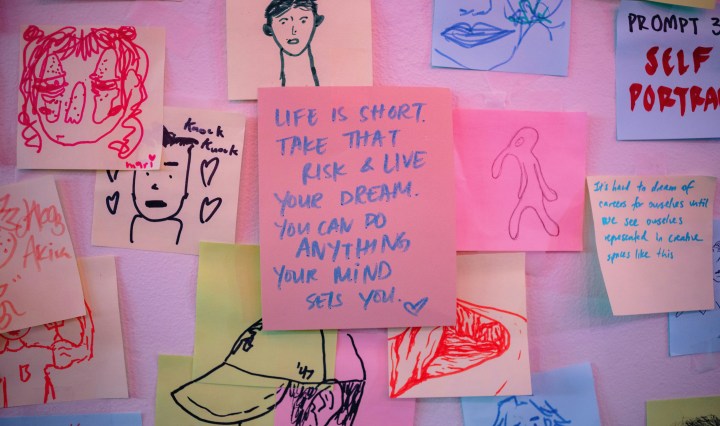 PROMPT 3
SELF
PORTRA
LIFE IS SHORT.
TAKE THAT
RISK & LIVE
YOUR DREAM.
YOU CAN DO
ANYTHING
YOUR MIND
SETS YOU.
mari
Knock
Knock
It's hard to dream of
careers for ourselves until
we see ourselves
represented in creative
spaces like this
'47